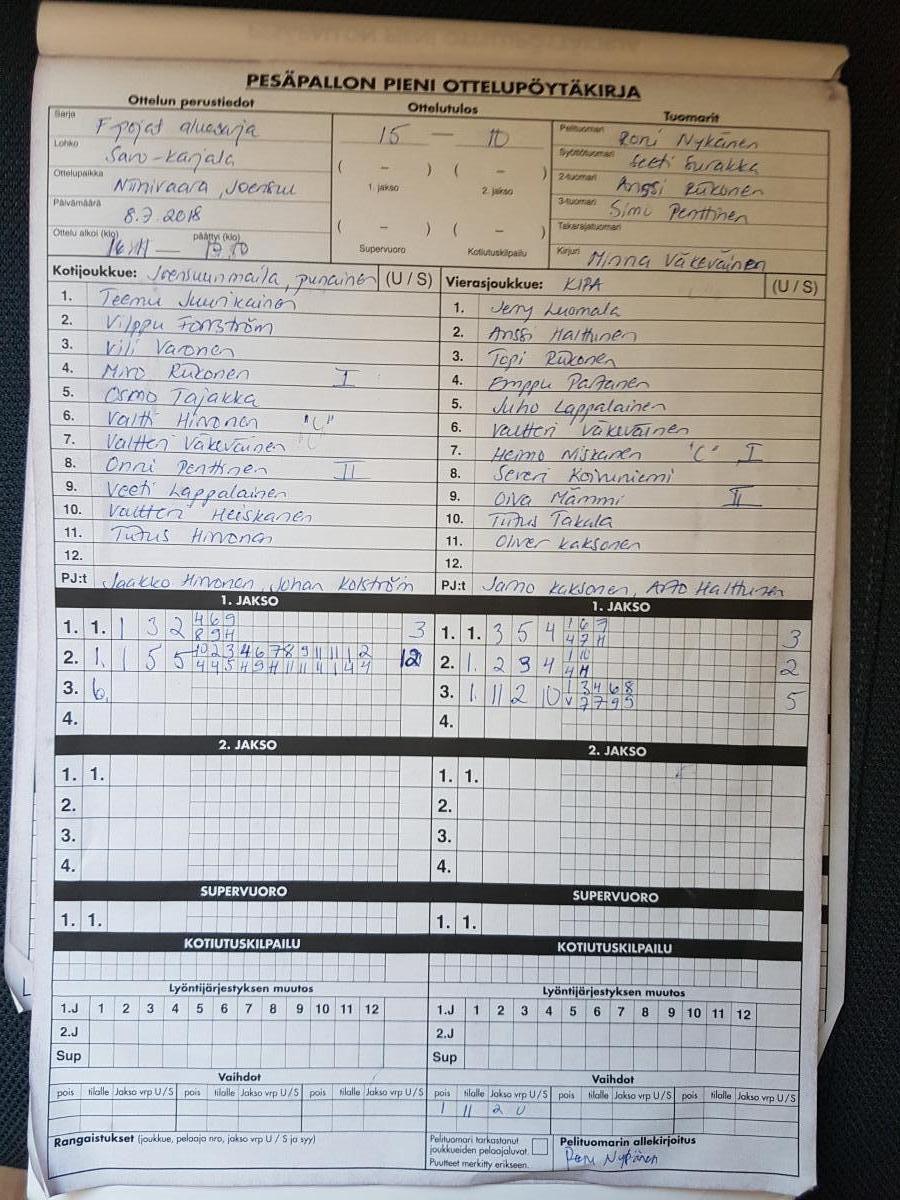 PESÄPALLON PIENI OTTELUPÖYTÄKIRJA
Ottelun perustiedot
Ottelutulos
Tuomarit
Sarja F-pojat aluesarja
Lohko Savo-Karjala
Ottelupaikka Niinivaara, Joensuu
Päivämäärä 8.7.2018
Ottelu alkoi (klo) päättyi (klo)
15 — 10
( – ) ( – )
1. jakso 2. jakso
( – ) ( – )
Supervuoro Kotiutuskilpailu
Pelituomari Roni Nykänen
Syöttötuomari Eeti Surakka
2-tuomari Anssi Riikonen
3-tuomari Simo Penttinen
Takarajatuomari
Kirjuri Minna Väkeväinen
Kotijoukkue: Joensuun maila, punainen (U / S)
1. Teemu Juurikainen
2. Vilppu Forsström
3. Vili Varonen
4. Miro Riikonen I
5. Osmo Tajakka
6. Valtti Hirvonen "C"
7. Valtteri Väkeväinen
8. Onni Penttinen II
9. Veeti Lappalainen
10. Valtteri Heiskanen
11. TuTus Hirvonen
12.
PJ:t Jaakko Hirvonen, Johan Kolström
Vierasjoukkue: KIPA (U / S)
1. Jerry Luomala
2. Anssi Halttunen
3. Topi Riikonen
4. Emppu Partanen
5. Juho Lappalainen
6. Valtteri Väkeväinen
7. Heimo Niskanen "C" I
8. Severi Koivuniemi
9. Oiva Mämmi II
10. TuTus Takala
11. Oliver Kaksonen
12.
PJ:t Jarno Kaksonen, Arto Halttunen
1. JAKSO
1. 1. 1 3 2 4 6 9 3
8 9 H
2. 1. 1 5 5 10 2 3 4 6 7 8 9 11 11 1 2 12
3. 6.
4.
2. JAKSO
1. 1.
2.
3.
4.
SUPERVUORO
1. 1.
KOTIUTUSKILPAILU
Lyöntijärjestyksen muutos
1.J 1 2 3 4 5 6 7 8 9 10 11 12
2.J
Sup
Vaihdot
pois tilalle Jakso vrp U / S pois tilalle Jakso vrp U / S pois tilalle Jakso vrp U / S
Rangaistukset (joukkue, pelaaja nro, jakso vrp U / S ja syy)
1. JAKSO
1. 1. 3 5 4 1 6 7 3
4 7 H
2. 1. 2 9 4 1 10 2
4 H
3. 1. 11 2 10 1 3 4 6 8 5
V 7 7 9 9
4.
2. JAKSO
1. 1.
2.
3.
4.
SUPERVUORO
1. 1.
KOTIUTUSKILPAILU
Lyöntijärjestyksen muutos
1.J 1 2 3 4 5 6 7 8 9 10 11 12
2.J
Sup
Vaihdot
pois tilalle Jakso vrp U / S pois tilalle Jakso vrp U / S pois tilalle Jakso vrp U / S
1 11 2 U
Pelituomari tarkastanut
joukkueiden pelaajaluvat.
Puutteet merkitty erikseen.
Pelituomarin allekirjoitus
Roni Nykänen